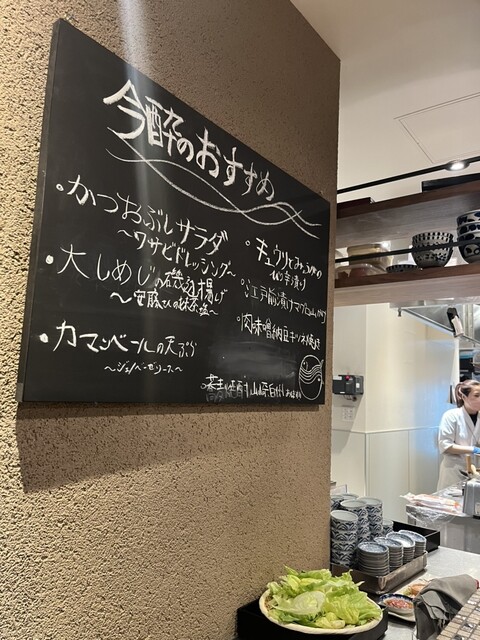 今酔のおすすめ
・かつおぶしサラダ
〜ワサビドレッシング〜
・大しめじの磯辺揚げ
〜安藤さんの抹茶塩〜
・カマンベールの天ぷら
〜ジェノベーゼソース〜
・キュウリとみょうがの
ピリ辛漬け
・江戸前漬けマグロ
・肉味噌納豆キツネ焼き